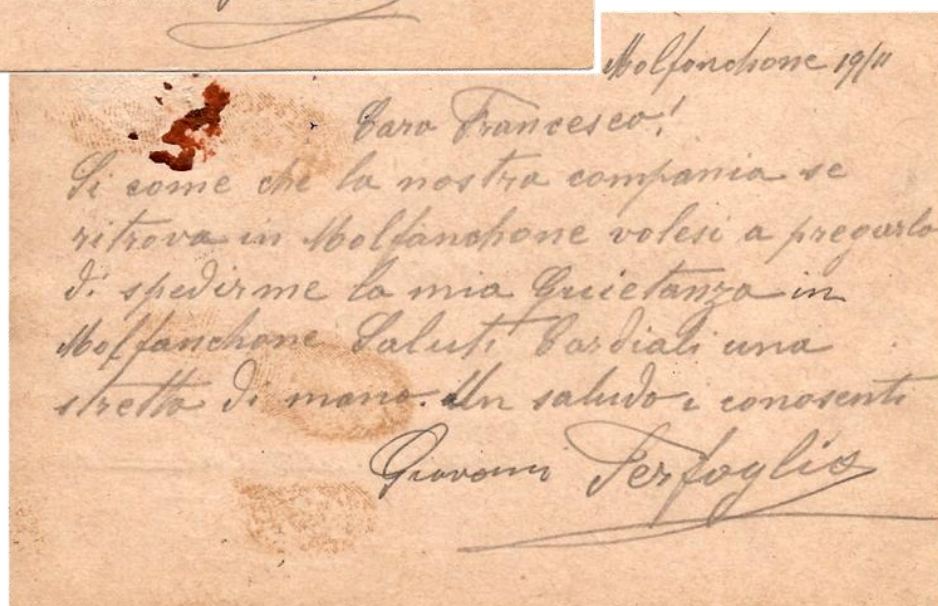 Molfonchone 19/11
Caro Francesco!
Si come che la nostra compania se
ritrova in Molfanchone volesi a pregarlo
di spedirme la mia Quietanza in
Molfanchone Saluti Cordiali una
stretta di mano. Un saludo i conosenti
Giovani Terfoglia